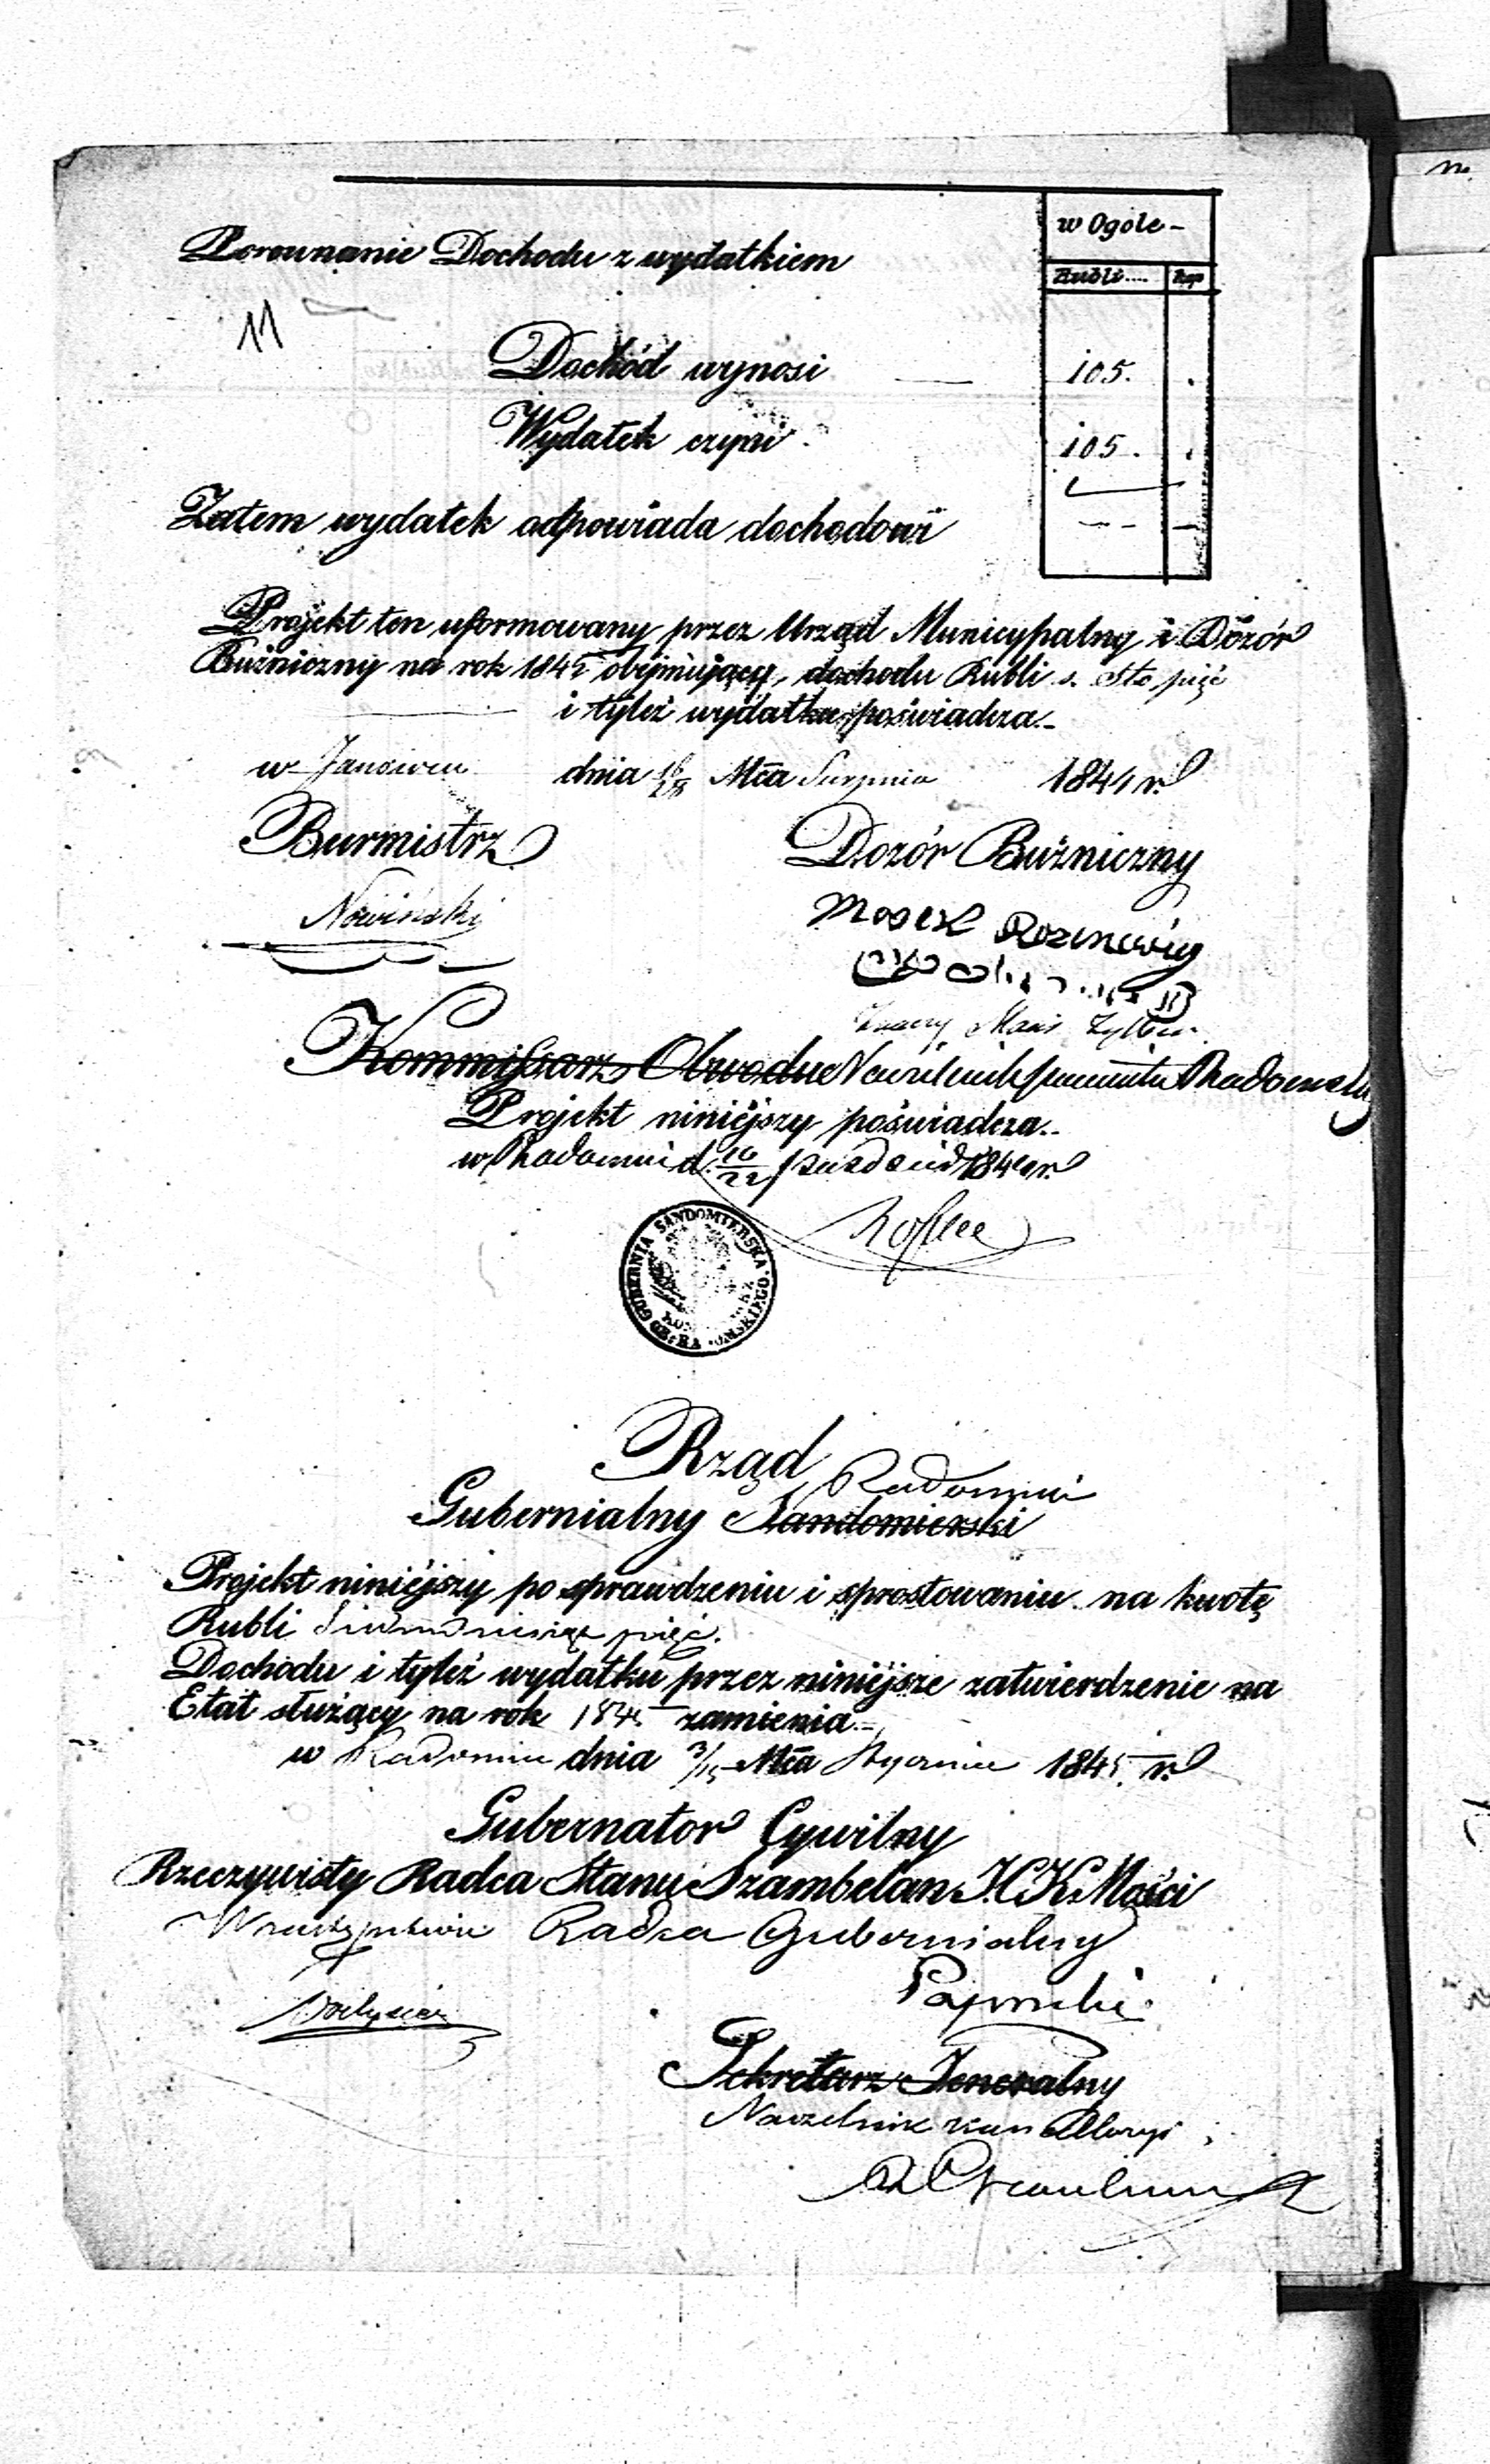 w Ogóle -
Rubli.... Kop
Porownanie Dochodu z wydatkiem
11
Dochód wynosi 105. .
Wydatek czyni 105. .
Zatem wydatek odpowiada dochodowi
Projekt ten uformowany przez Urząd Municypalny i Dozór
Bużniczny na rok 1845 obejmujący, dochodu Rubli s. Sto pięć
i tyleż wydatku poświadcza.-
w Janowcu dnia 16/28 Mca Sierpnia 1844 r.
Burmistrz Dozór Bużniczny
Nowiński Mosek
Kommissarz Obwodu Naczelnik Powiatu Radomski
Projekt niniéjszy poświadcza..
w Radomiu d. 10/22 Pazdzier 1844 r.
GUBERNIA SANDOMIERSKA
Rząd
Radomski
Gubernialny Sandomierski
Projekt niniéjszy po sprawdzeniu i sprostowaniu na kwotę
Rubli Siedmdziesiąt pięć.
Dochodu i tyleż wydatku przez niniéjsze zatwierdzenie na
Etat służący na rok 1845 zamienia.-
w Radomiu dnia 3/15 Mca Stycznia 1845 r.
Gubernator Cywilny
Rzeczywisty Radca Stanu Szambelan J. C. K. Mości
W zastępstwie Radca Gubernialny
Sekretarz Jeneralny
Naczelnik Kancellaryi